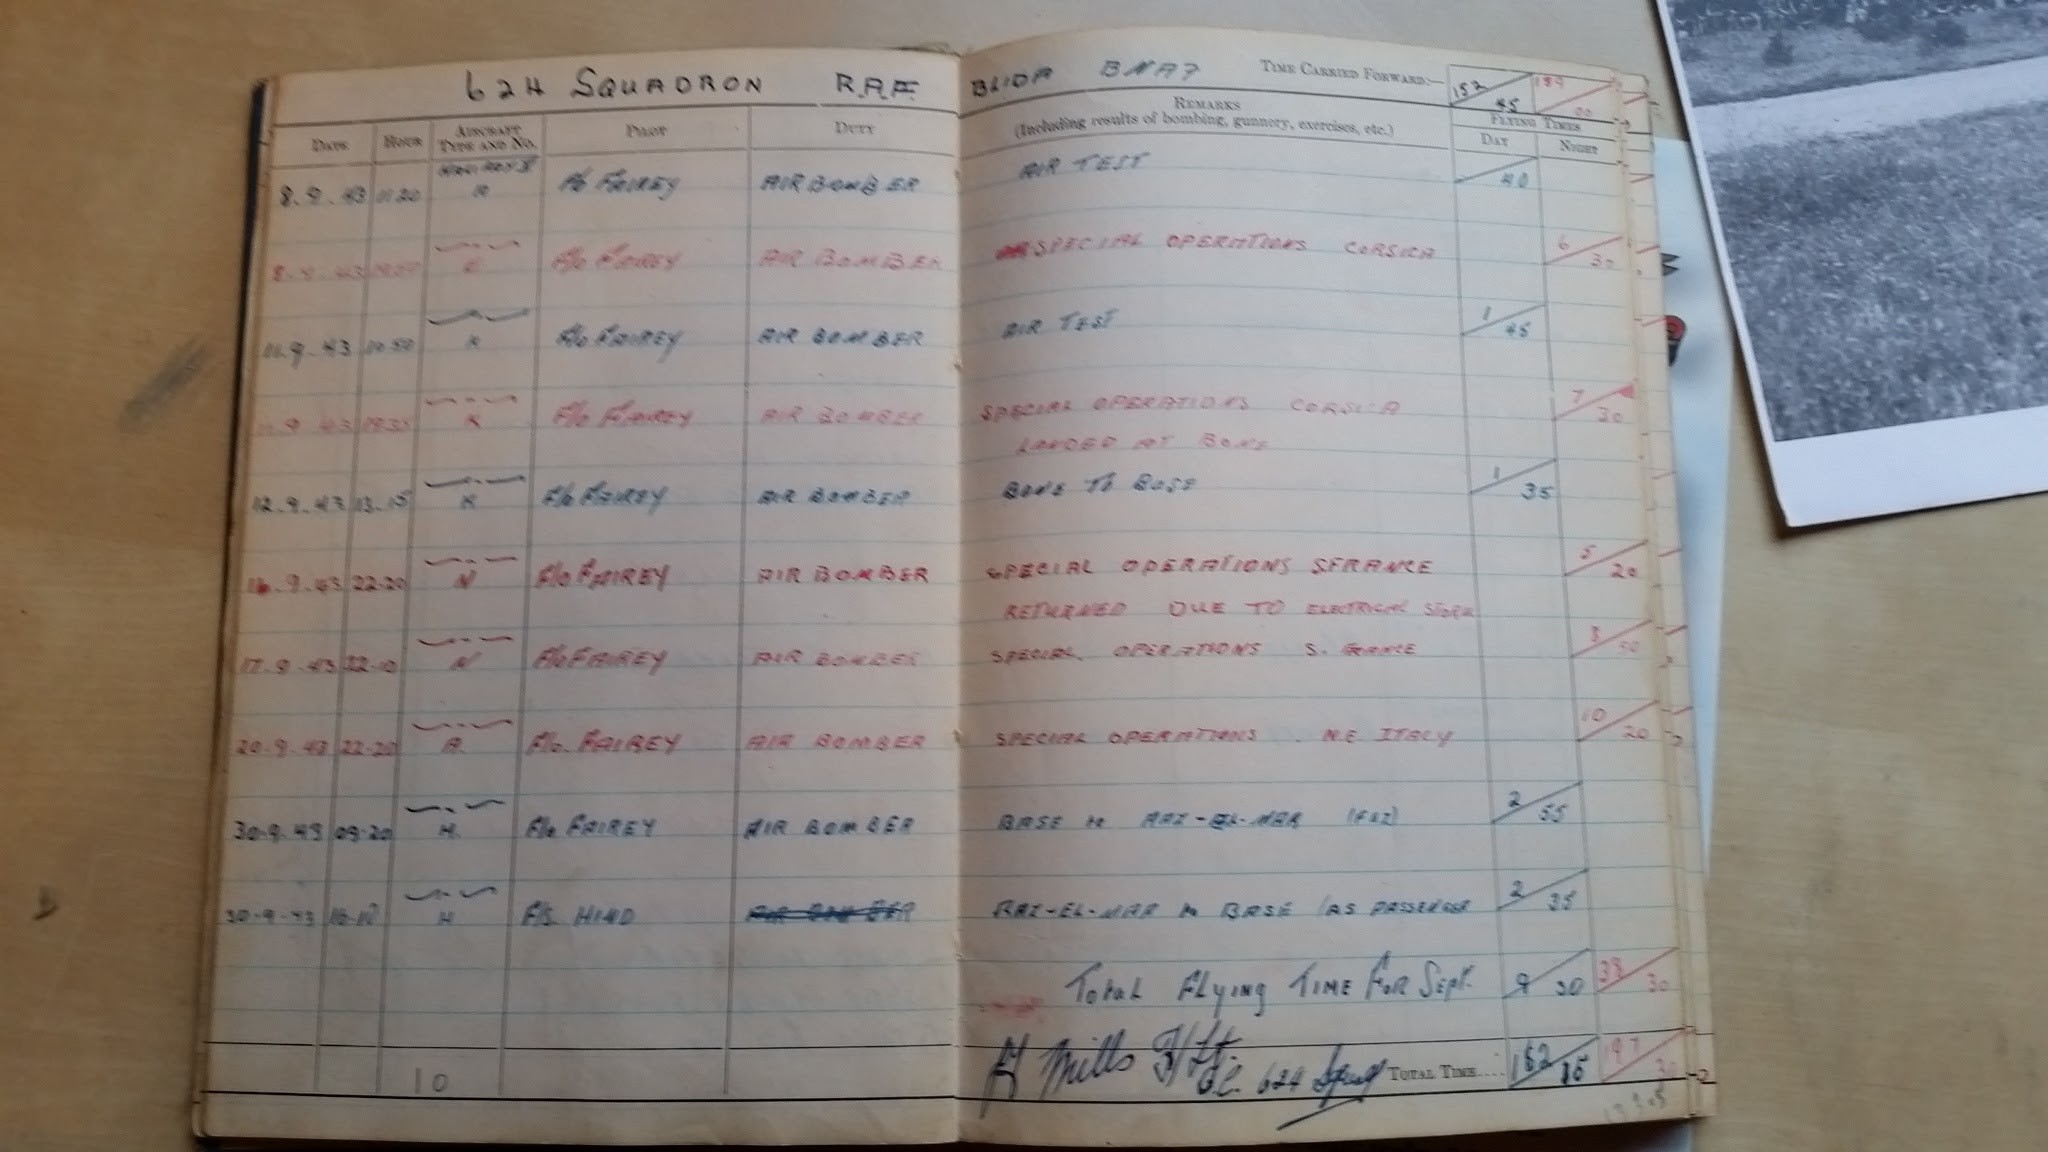 624 SQUADRON RAF BLIDA BNAF TIME CARRIED FORWARD:— 152 45 159 00
DATE HOUR AIRCRAFT TYPE AND NO. PILOT DUTY REMARKS (Including results of bombing, gunnery, exercises, etc.) FLYING TIMES DAY NIGHT
8.9.43 11.20 F/O FAIREY AIR BOMBER AIR TEST 40
8.9.43 F/O FAIREY AIR BOMBER SPECIAL OPERATIONS CORSICA 6 30
11.9.43 10.50 K F/O FAIREY AIR BOMBER AIR TEST 1 45
11.9.43 19.35 K F/O FAIREY AIR BOMBER SPECIAL OPERATIONS CORSICA 7 30
LANDED AT BONE
12.9.43 13.15 K F/O FAIREY AIR BOMBER BONE TO BASE 1 35
16.9.43 22.20 N F/O FAIREY AIR BOMBER SPECIAL OPERATIONS S FRANCE 5 20
RETURNED DUE TO ELECTRICAL STORM
17.9.43 22.10 N F/O FAIREY AIR BOMBER SPECIAL OPERATIONS S. FRANCE 8 50
20.9.43 22.20 A. F/O. FAIREY AIR BOMBER SPECIAL OPERATIONS N.E. ITALY 10 20
30.9.43 09.20 H. F/O FAIREY AIR BOMBER BASE to RAZ-EL-MAR (FEZ) 2 55
30.9.43 H F/S. HIND AIR BOMBER RAZ-EL-MAR to BASE (AS PASSENGER 2 35
Total Flying TIME FOR Sept. 9 30 38 30
Mills F/Lt. 624 Sqdn TOTAL TIME.... 162 15 197 30
10